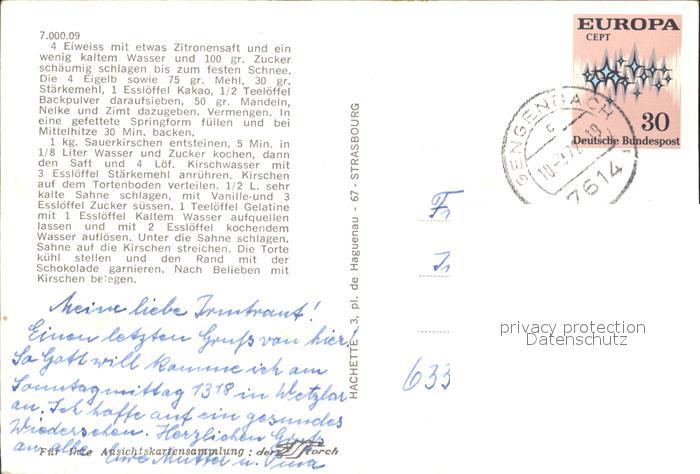 7.000.09
4 Eiweiss mit etwas Zitronensaft und ein
wenig kaltem Wasser und 100 gr. Zucker
schäumig schlagen bis zum festen Schnee.
Die 4 Eigelb sowie 75 gr. Mehl, 30 gr.
Stärkemehl, 1 Esslöffel Kakao, 1/2 Teelöffel
Backpulver daraufsieben, 50 gr. Mandeln,
Nelke und Zimt dazugeben. Vermengen. In
eine gefettete Springform füllen und bei
Mittelhitze 30 Min. backen.
1 kg. Sauerkirschen entsteinen, 5 Min. in
1/8 Liter Wasser und Zucker kochen, dann
den Saft und 4 Löf. Kirschwasser mit
3 Esslöffel Stärkemehl anrühren. Kirschen
auf dem Tortenboden verteilen. 1/2 L. sehr
kalte Sahne schlagen, mit Vanille-und 3
Esslöffel Zucker süssen, 1 Teelöffel Gelatine
mit 1 Esslöffel Kaltem Wasser aufquellen
lassen und mit 2 Esslöffel kochendem
Wasser auflösen. Unter die Sahne schlagen.
Sahne auf die Kirschen streichen. Die Torte
kühl stellen und den Rand mit der
Schokolade garnieren. Nach Belieben mit
Kirschen belegen.
Meine liebe Irmtraut!
Einen letzten Gruß von hier!
So Gott will komme ich am
Sonntagmittag 13 18 in Wetzlar
an. Ich hoffe auf ein gesundes
Wiedersehen. Herzlichen Gruß
an alle. Eure Mutter u.
Für Ihre Ansichtskartensammlung : der Storch
HACHETTE - 3, pl. de Haguenau - 67 - STRASBOURG
EUROPA
CEPT
30
Deutsche Bundespost
GENGENBACH
c
7614
633
privacy protection
Datenschutz